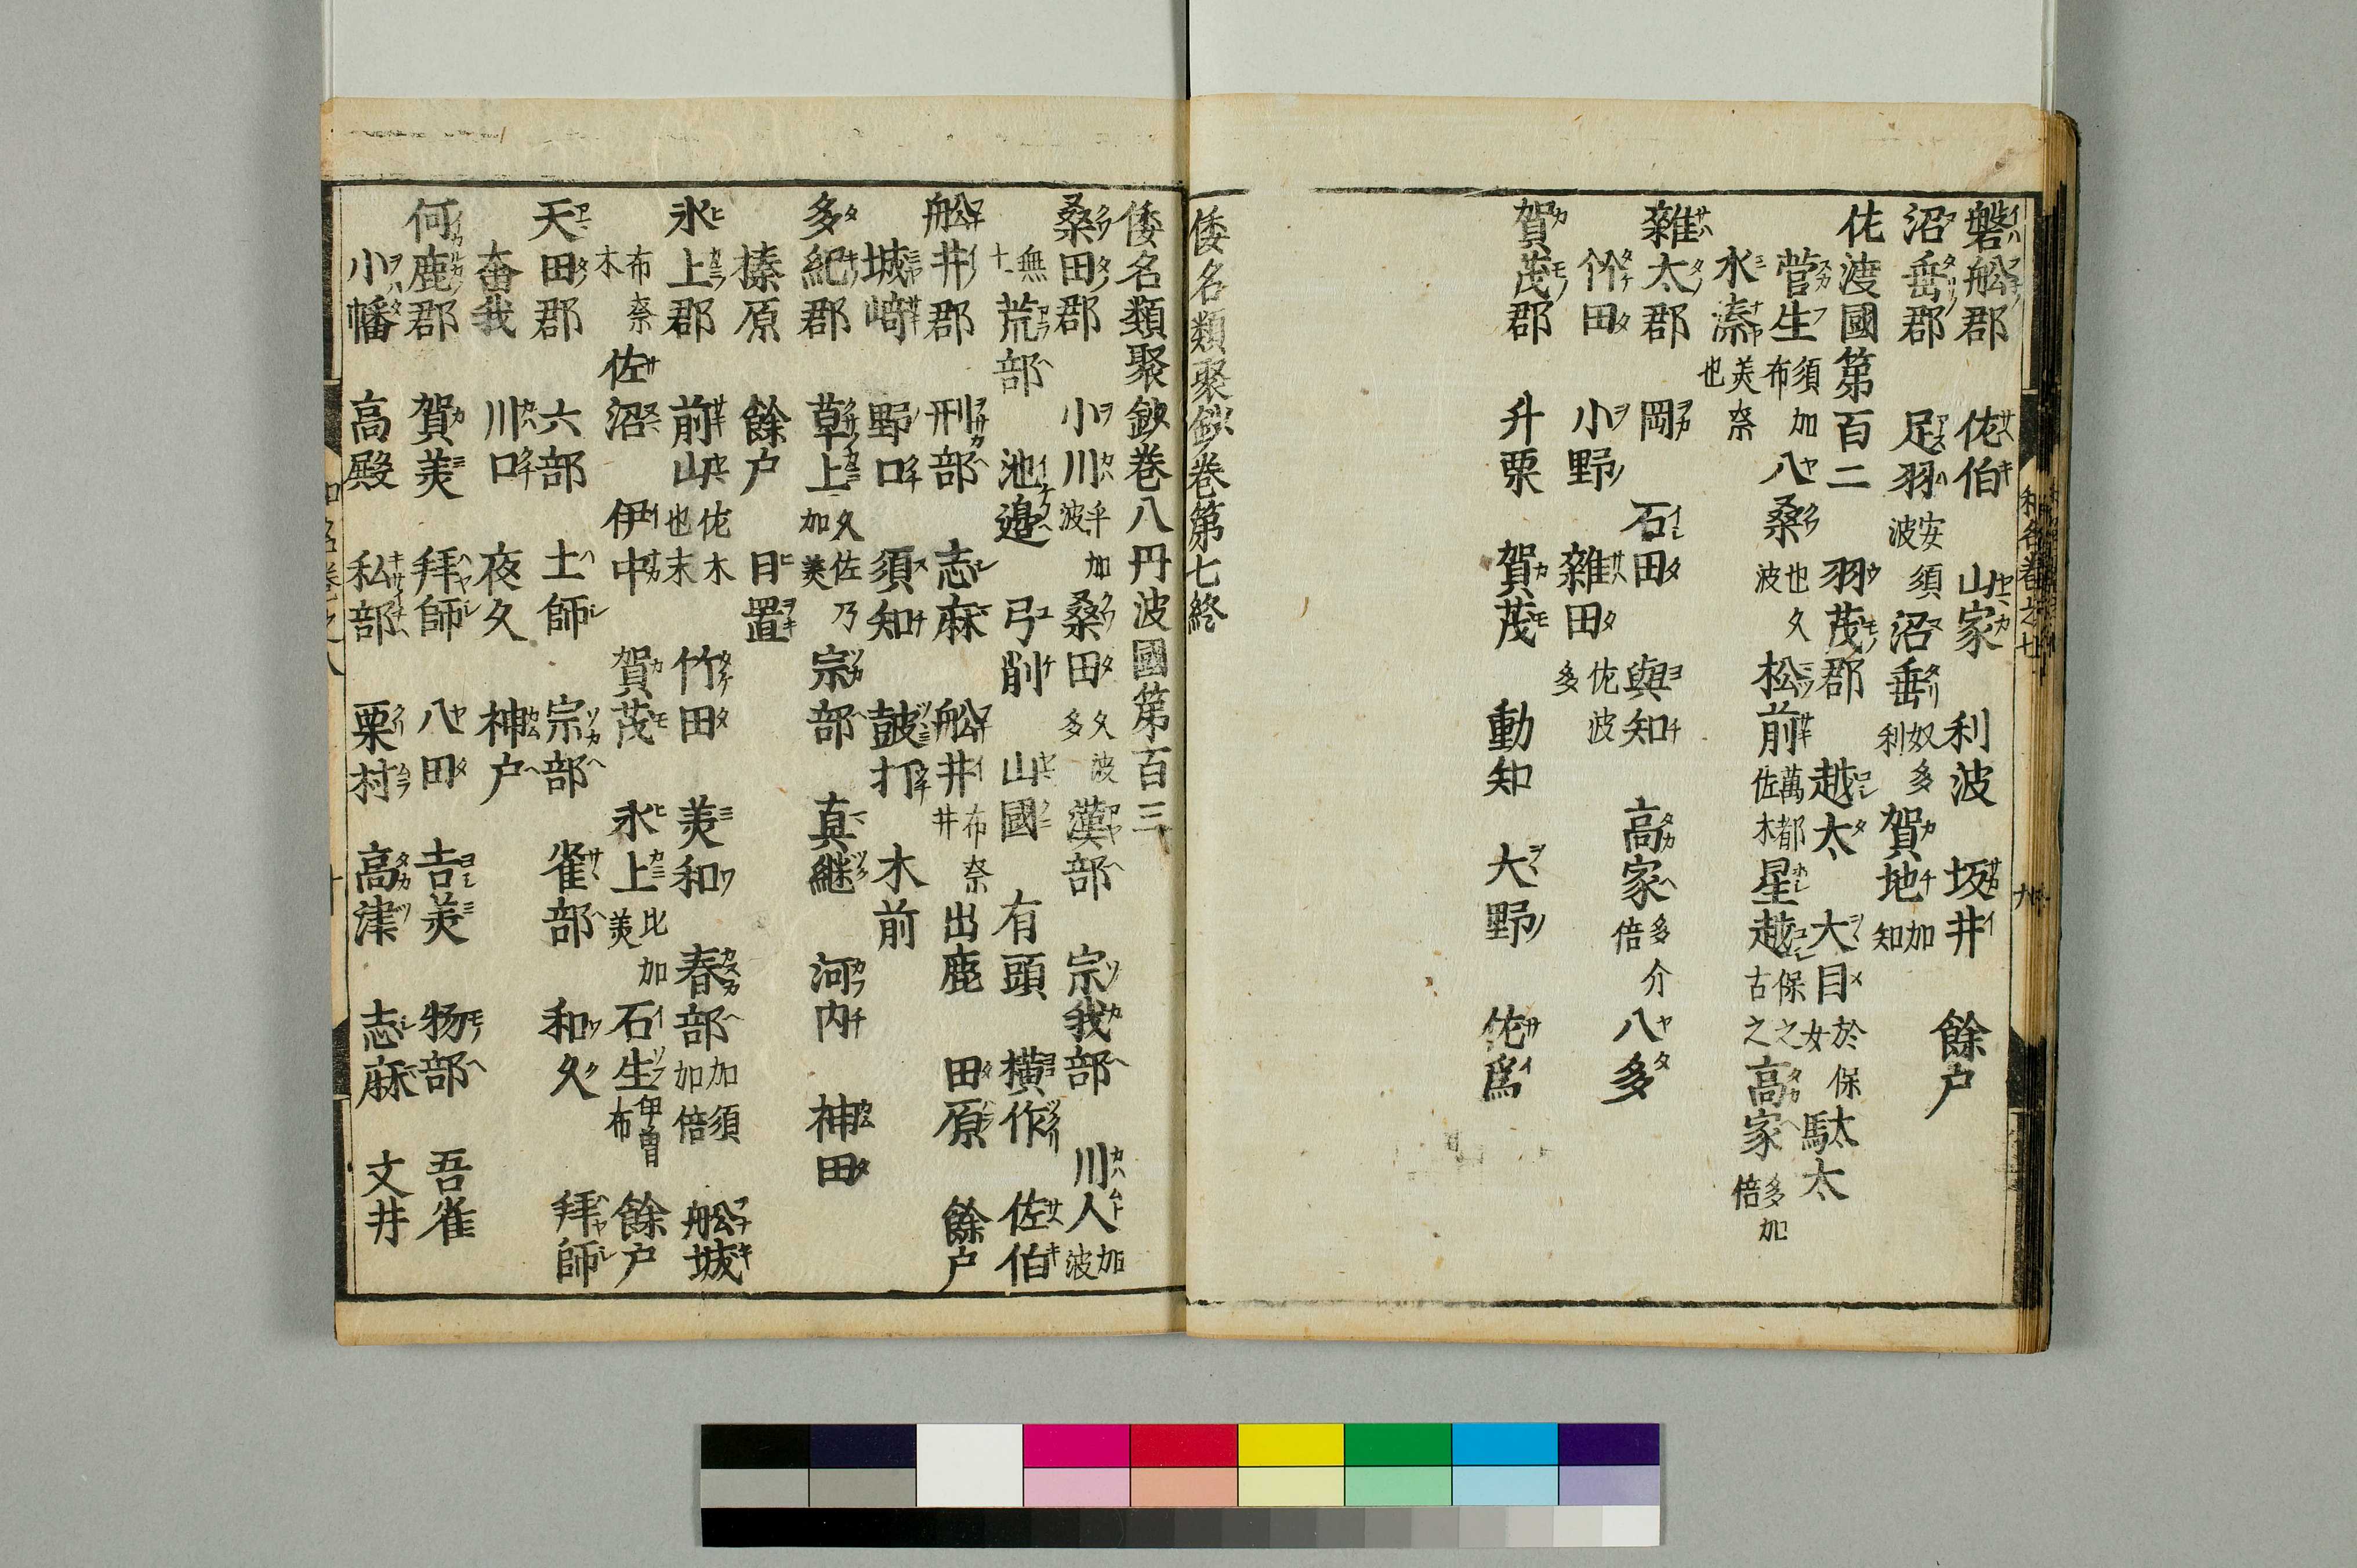 磐舩郡 佐伯 山家 利波 坂井 餘戸
沼垂郡 足羽安須波 沼垂奴多利 賀地加知
佐渡國第百二 羽茂郡 越太 大目於保女 駄太
菅生須加布 八桒也久波 松前萬都佐木 星越保之古之 高家多加倍
水湊美奈也
雜太郡 岡 石田 與知 高家多介倍 八多
竹田 小野 雜田佐波多
賀茂郡 升栗 賀茂 動知 大野 佐爲
倭名類聚鈔卷第七終
倭名類聚鈔卷八丹波國第百三
桒田郡 小川乎加波 桒田久波多 漢部 宗我部 川人加波
無十 荒部 池邉 弓削 山國 有頭 横作 佐伯
舩井郡 刑部 志麻 舩井布奈井 出鹿 田原 餘戸
城﨑 野口 須知 鼓打 木前
多紀郡 草上久佐乃加美 宗部 真継 河内 神田
榛原 餘戸 日置
氷上郡 前山佐木也末 竹田 美和 春部加須加倍 舩城
布奈木 佐沼 伊中 賀茂 氷上比加美 石生伊曽布 餘戸
天田郡 六部 土師 宗部 雀部 和久 拜師
奄我 川口 夜久 神戸
何鹿郡 賀美 拜師 八田 吉美 物部 吾雀
小幡 高殿 私部 栗村 高津 志麻 文井